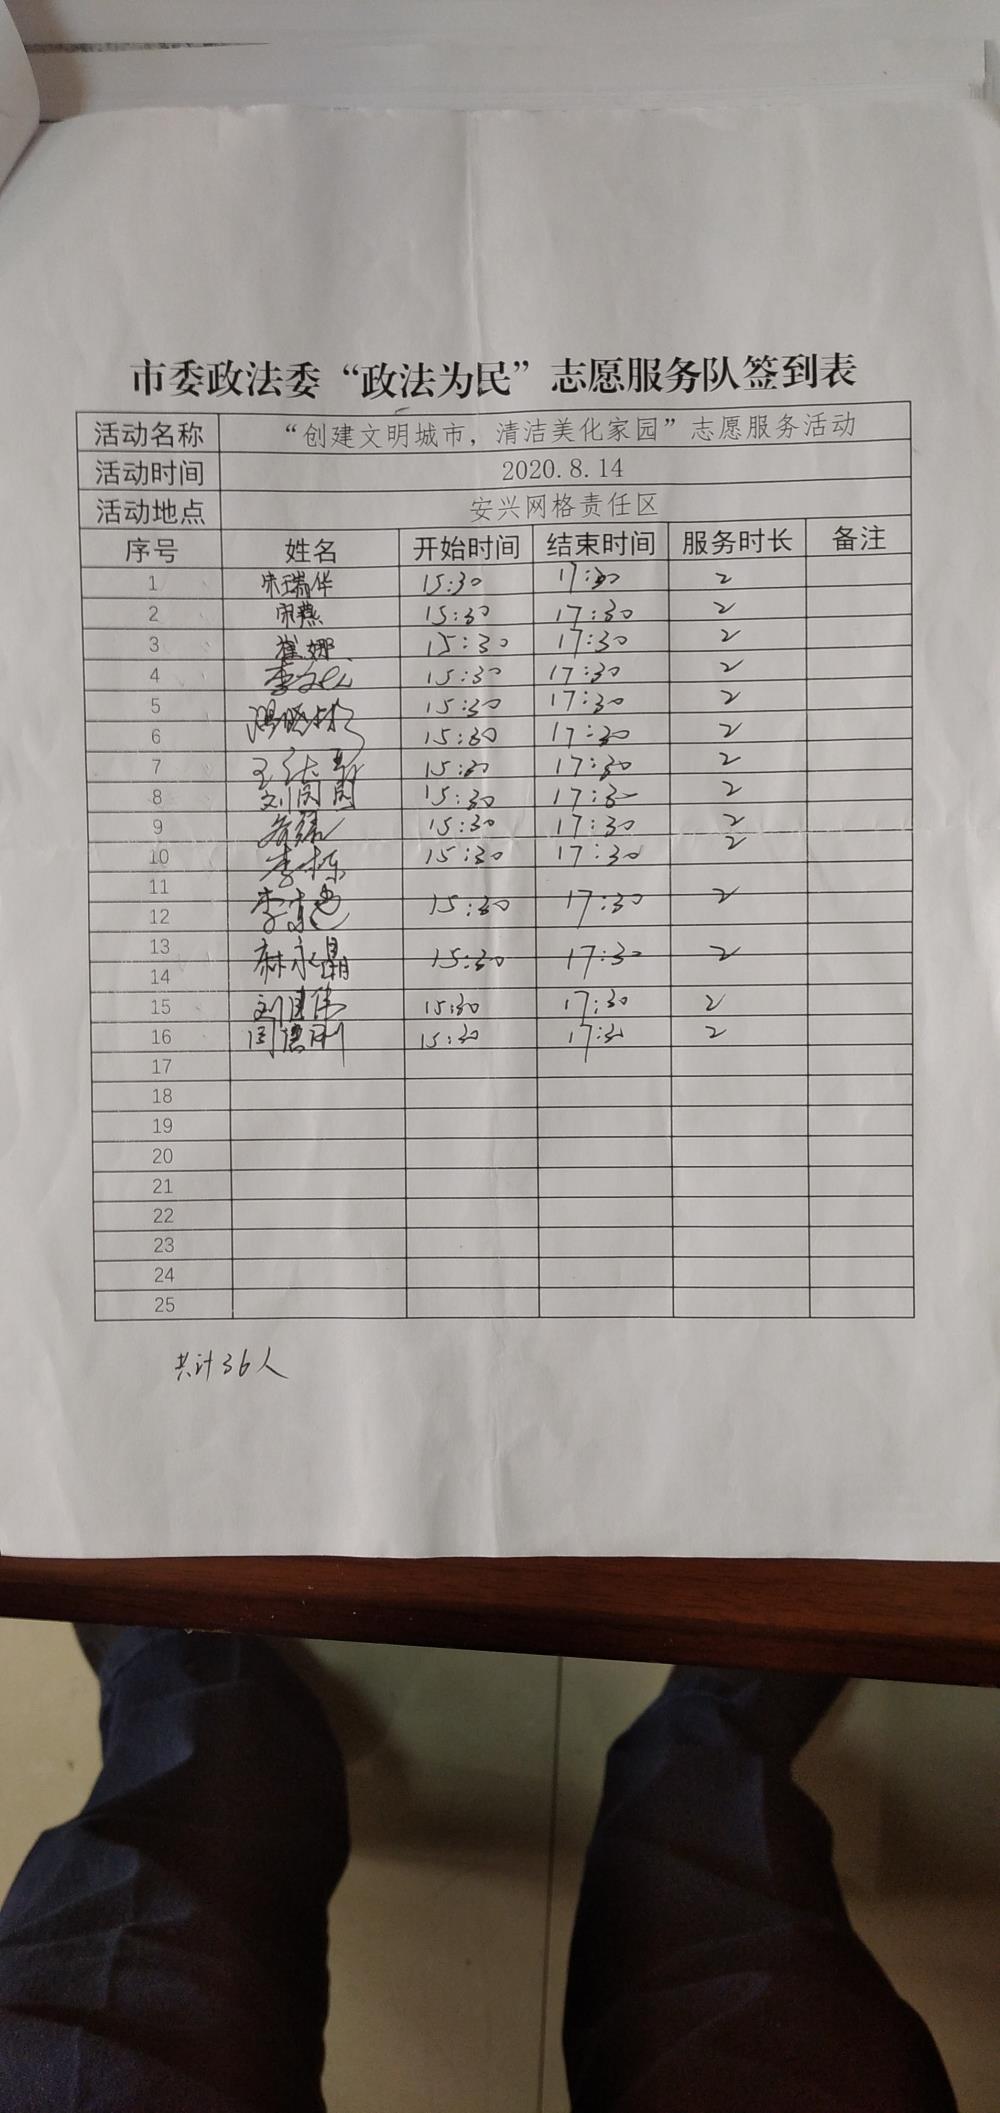 市委政法委“政法为民”志愿服务队签到表
活动名称 “创建文明城市，清洁美化家园”志愿服务活动
活动时间 2020.8.14
活动地点 安兴网格责任区
序号 姓名 开始时间 结束时间 服务时长 备注
1 宋瑞华 15:30 17:30 2
2 宋燕 15:30 17:30 2
3 崔娜 15:30 17:30 2
4 15:30 17:30 2
5 15:30 17:30 2
6 15:30 17:30 2
7 15:30 17:30 2
8 刘囡囡 15:30 17:30 2
9 15:30 17:30 2
10 李栋 15:30 17:30 2
11
12 李 15:30 17:30 2
13
14 麻永晶 15:30 17:30 2
15 刘建伟 15:30 17:30 2
16 闫德刚 15:30 17:30 2
17
18
19
20
21
22
23
24
25
共计36人